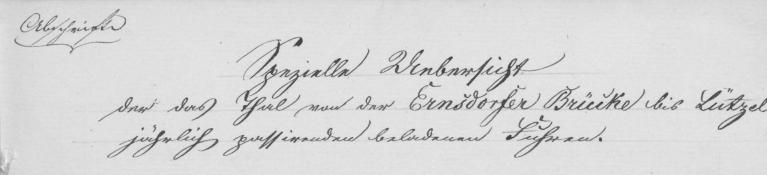 Abschrift
Spezielle Uebersicht
der das Thal von der Ernsdorfer Brücke bis Lützel
jährlich passirenden beladenen Fuhren.